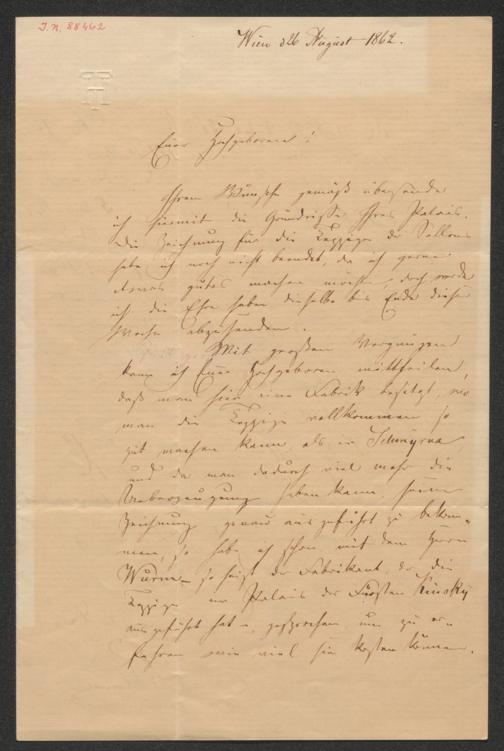 J.N. 88462
Wien d 26 August 1862.
Euer Hochgeboren!
Ihrem Wunsche gemäß übersende
ich hiermit die Grundrisse Ihres Palais.
Die Zeichnung für die Teppiche des Sallons
habe ich noch nicht beendet, da ich gerne
etwas gutes machen möchte, doch werde
ich die Ehre haben dieselbe bis Ende dieser
Woche abzusenden.
Mit großem Vergnügen
kann ich Euer Hochgeboren mittheilen,
daß man hier eine Fabrik besitzt, wo
man die Teppiche vollkommen so
gut machen kann als in Schmyrna
und da man dadurch viel mehr die
Ueberzeugung haben kann, seine
Zeichnung genau ausgeführt zu bekom-
men, so habe ich schon mit dem Herrn
so heißt der Fabrikant, der die
Teppiche im Palais des Fürsten Kinsky
ausgeführt hat, gesprochen, um zu er-
fahren wie viel sie kosten können.